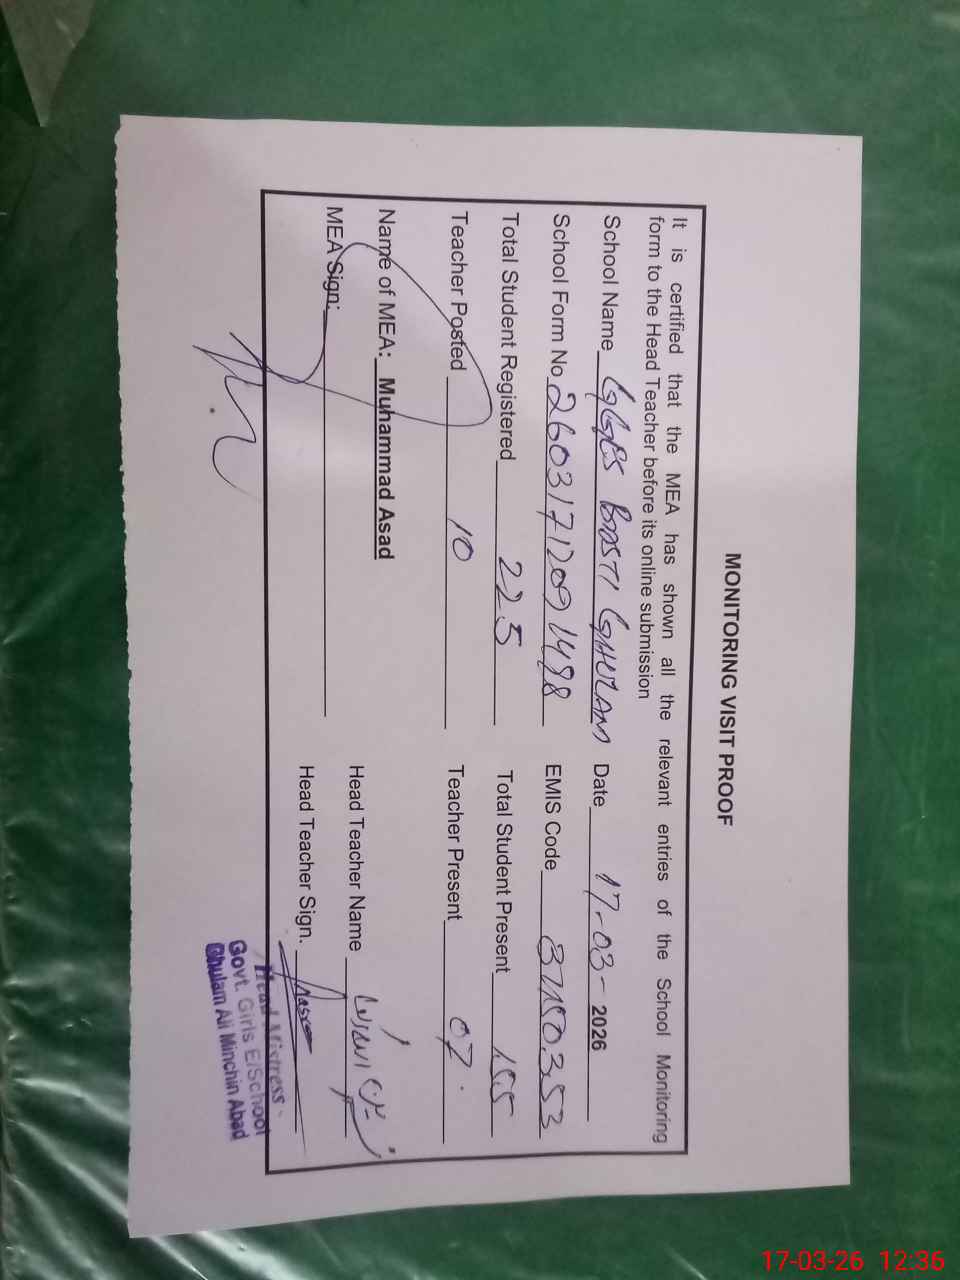 MONITORING VISIT PROOF
It is certified that the MEA has shown all the relevant entries of the School Monitoring
form to the Head Teacher before its online submission
School Name GGES BASTI GHULAM Date 17-03- 2026
School Form No 26031712091488 EMIS Code
Total Student Registered 225 Total Student Present 155
Teacher Posted 10 Teacher Present 07
Name of MEA: Muhammad Asad
Head Teacher Name
MEA Sign:
Head Teacher Sign.
Head Mistress
Govt. Girls E/School
Ghulam Ali Minchin Abad
17-03-26 12:36